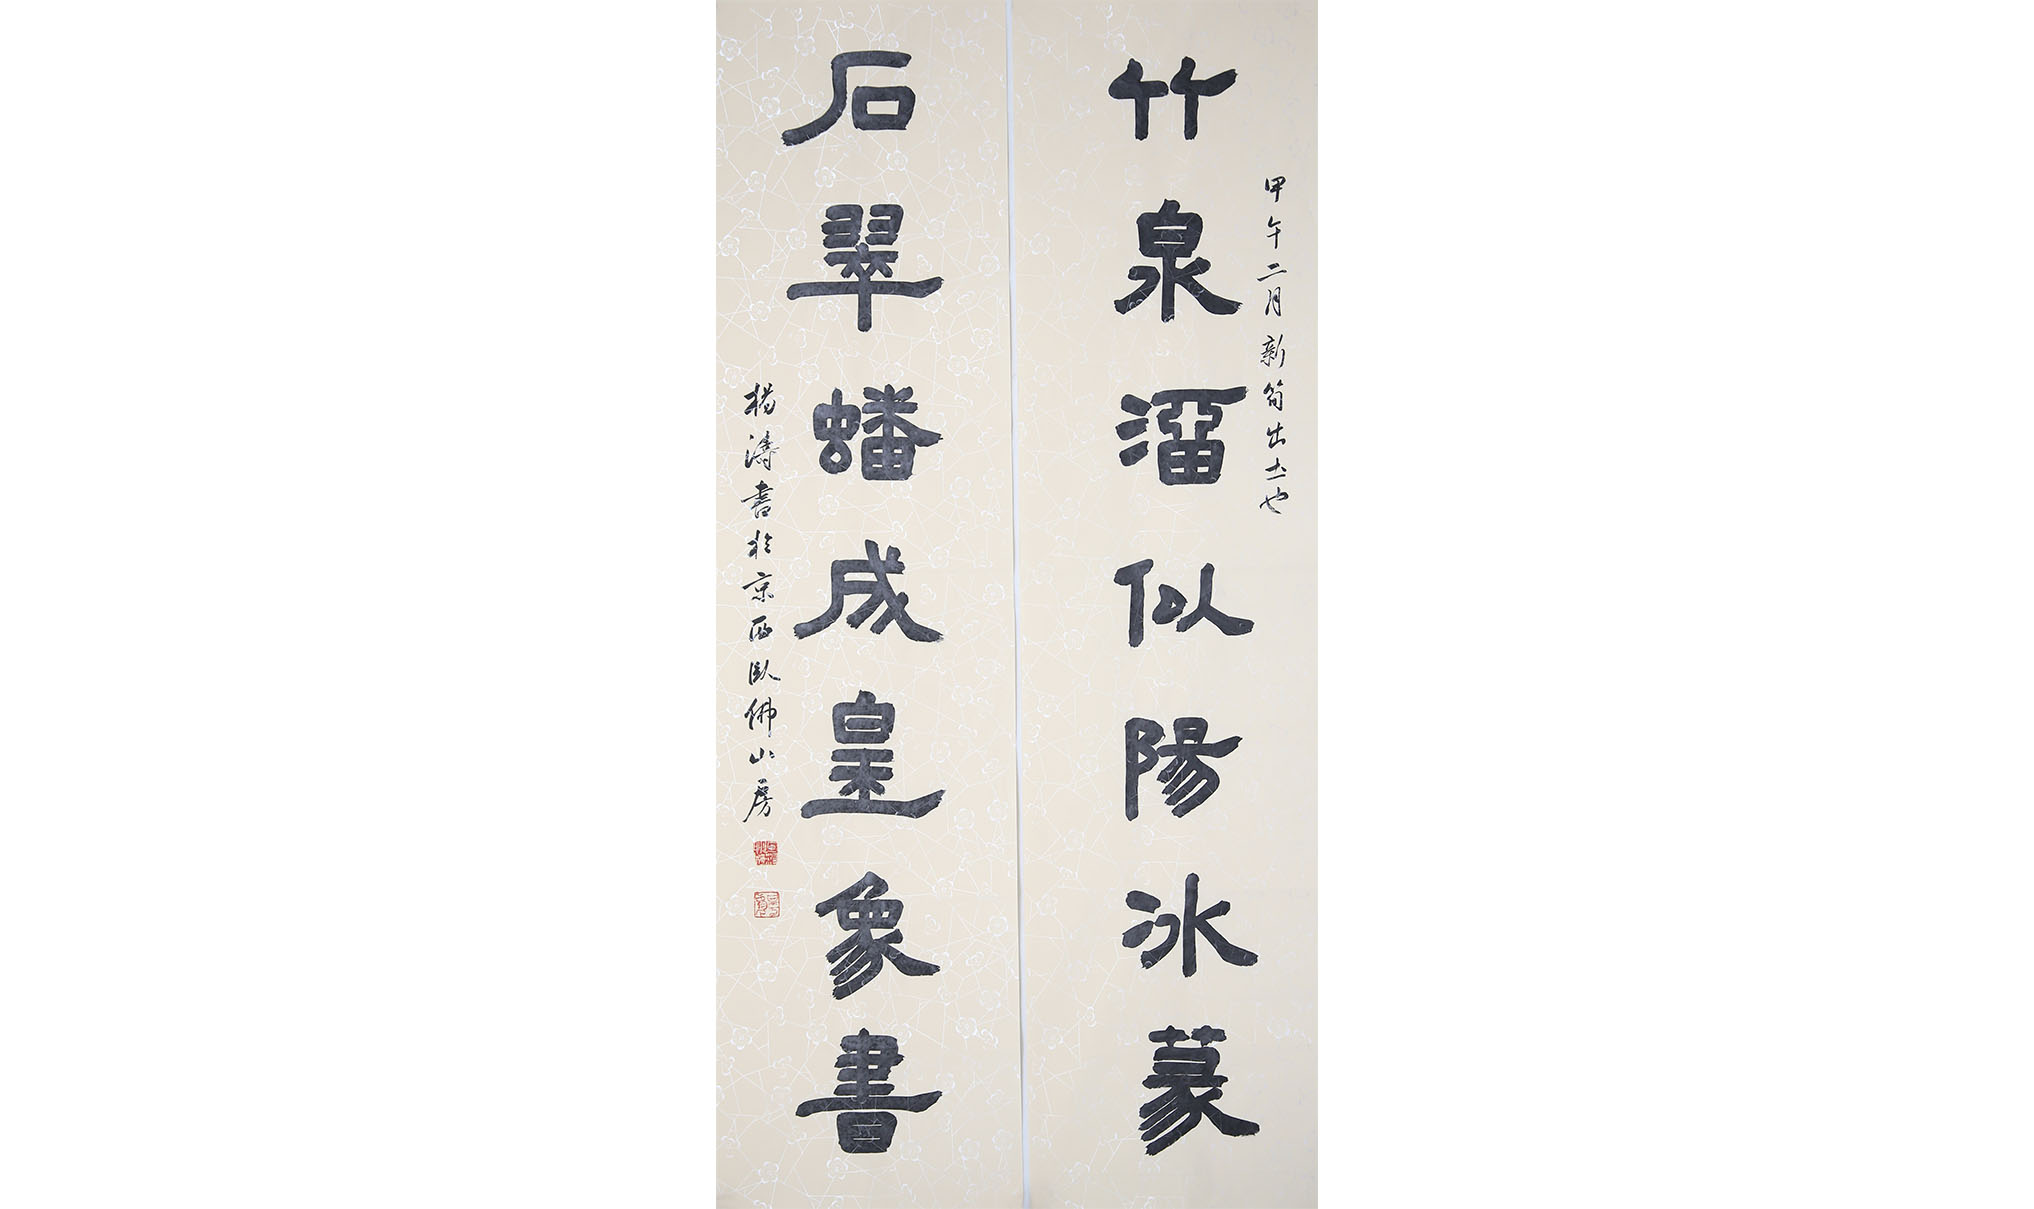 甲午二月新筍出土也
竹泉溜似陽冰篆
石翠蟠成皇象書
楊濤書於京西臥佛山房